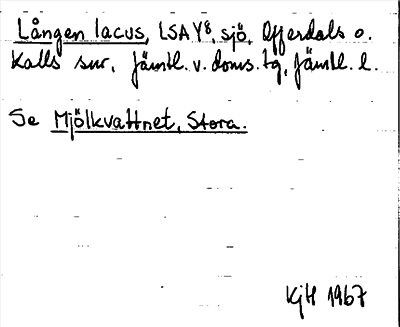 Lången lacus, LSA Y8, sjö, Offerdals o.
Kalls snr, Jämtl. v. doms. tg, Jämtl. l.
Se Mjölkvattnet, Stora.
KjH 1967